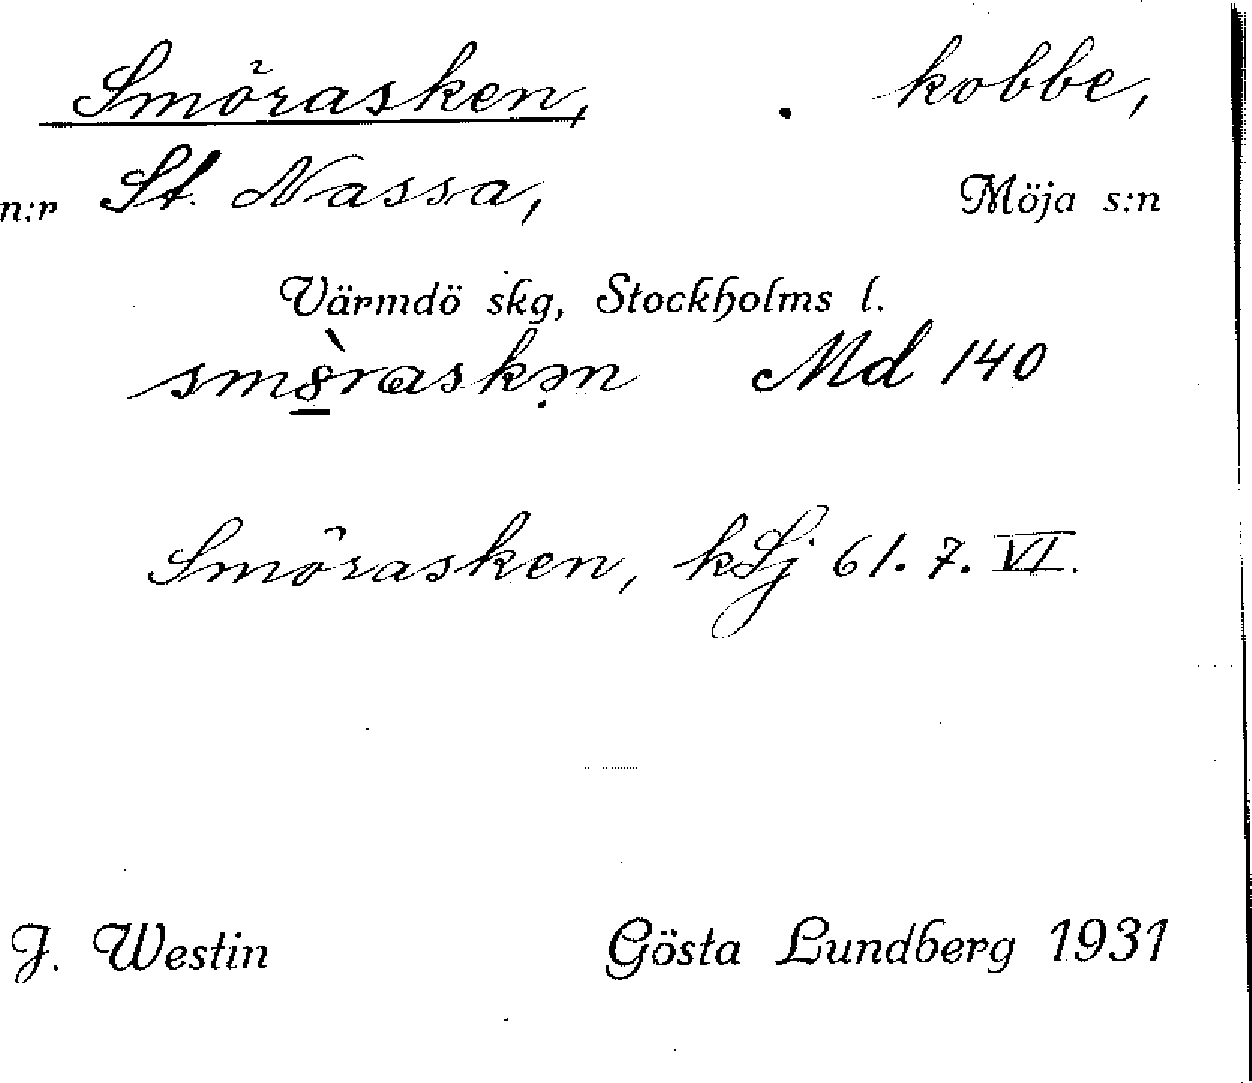 Smörasken, kobbe,
n:r St. Nassa, Möja s:n
Värmdö skg, Stockholms l.
smö̀raskən Md 140
Smörasken, kLj 61. 7. VI.
J. Westin Gösta Lundberg 1931